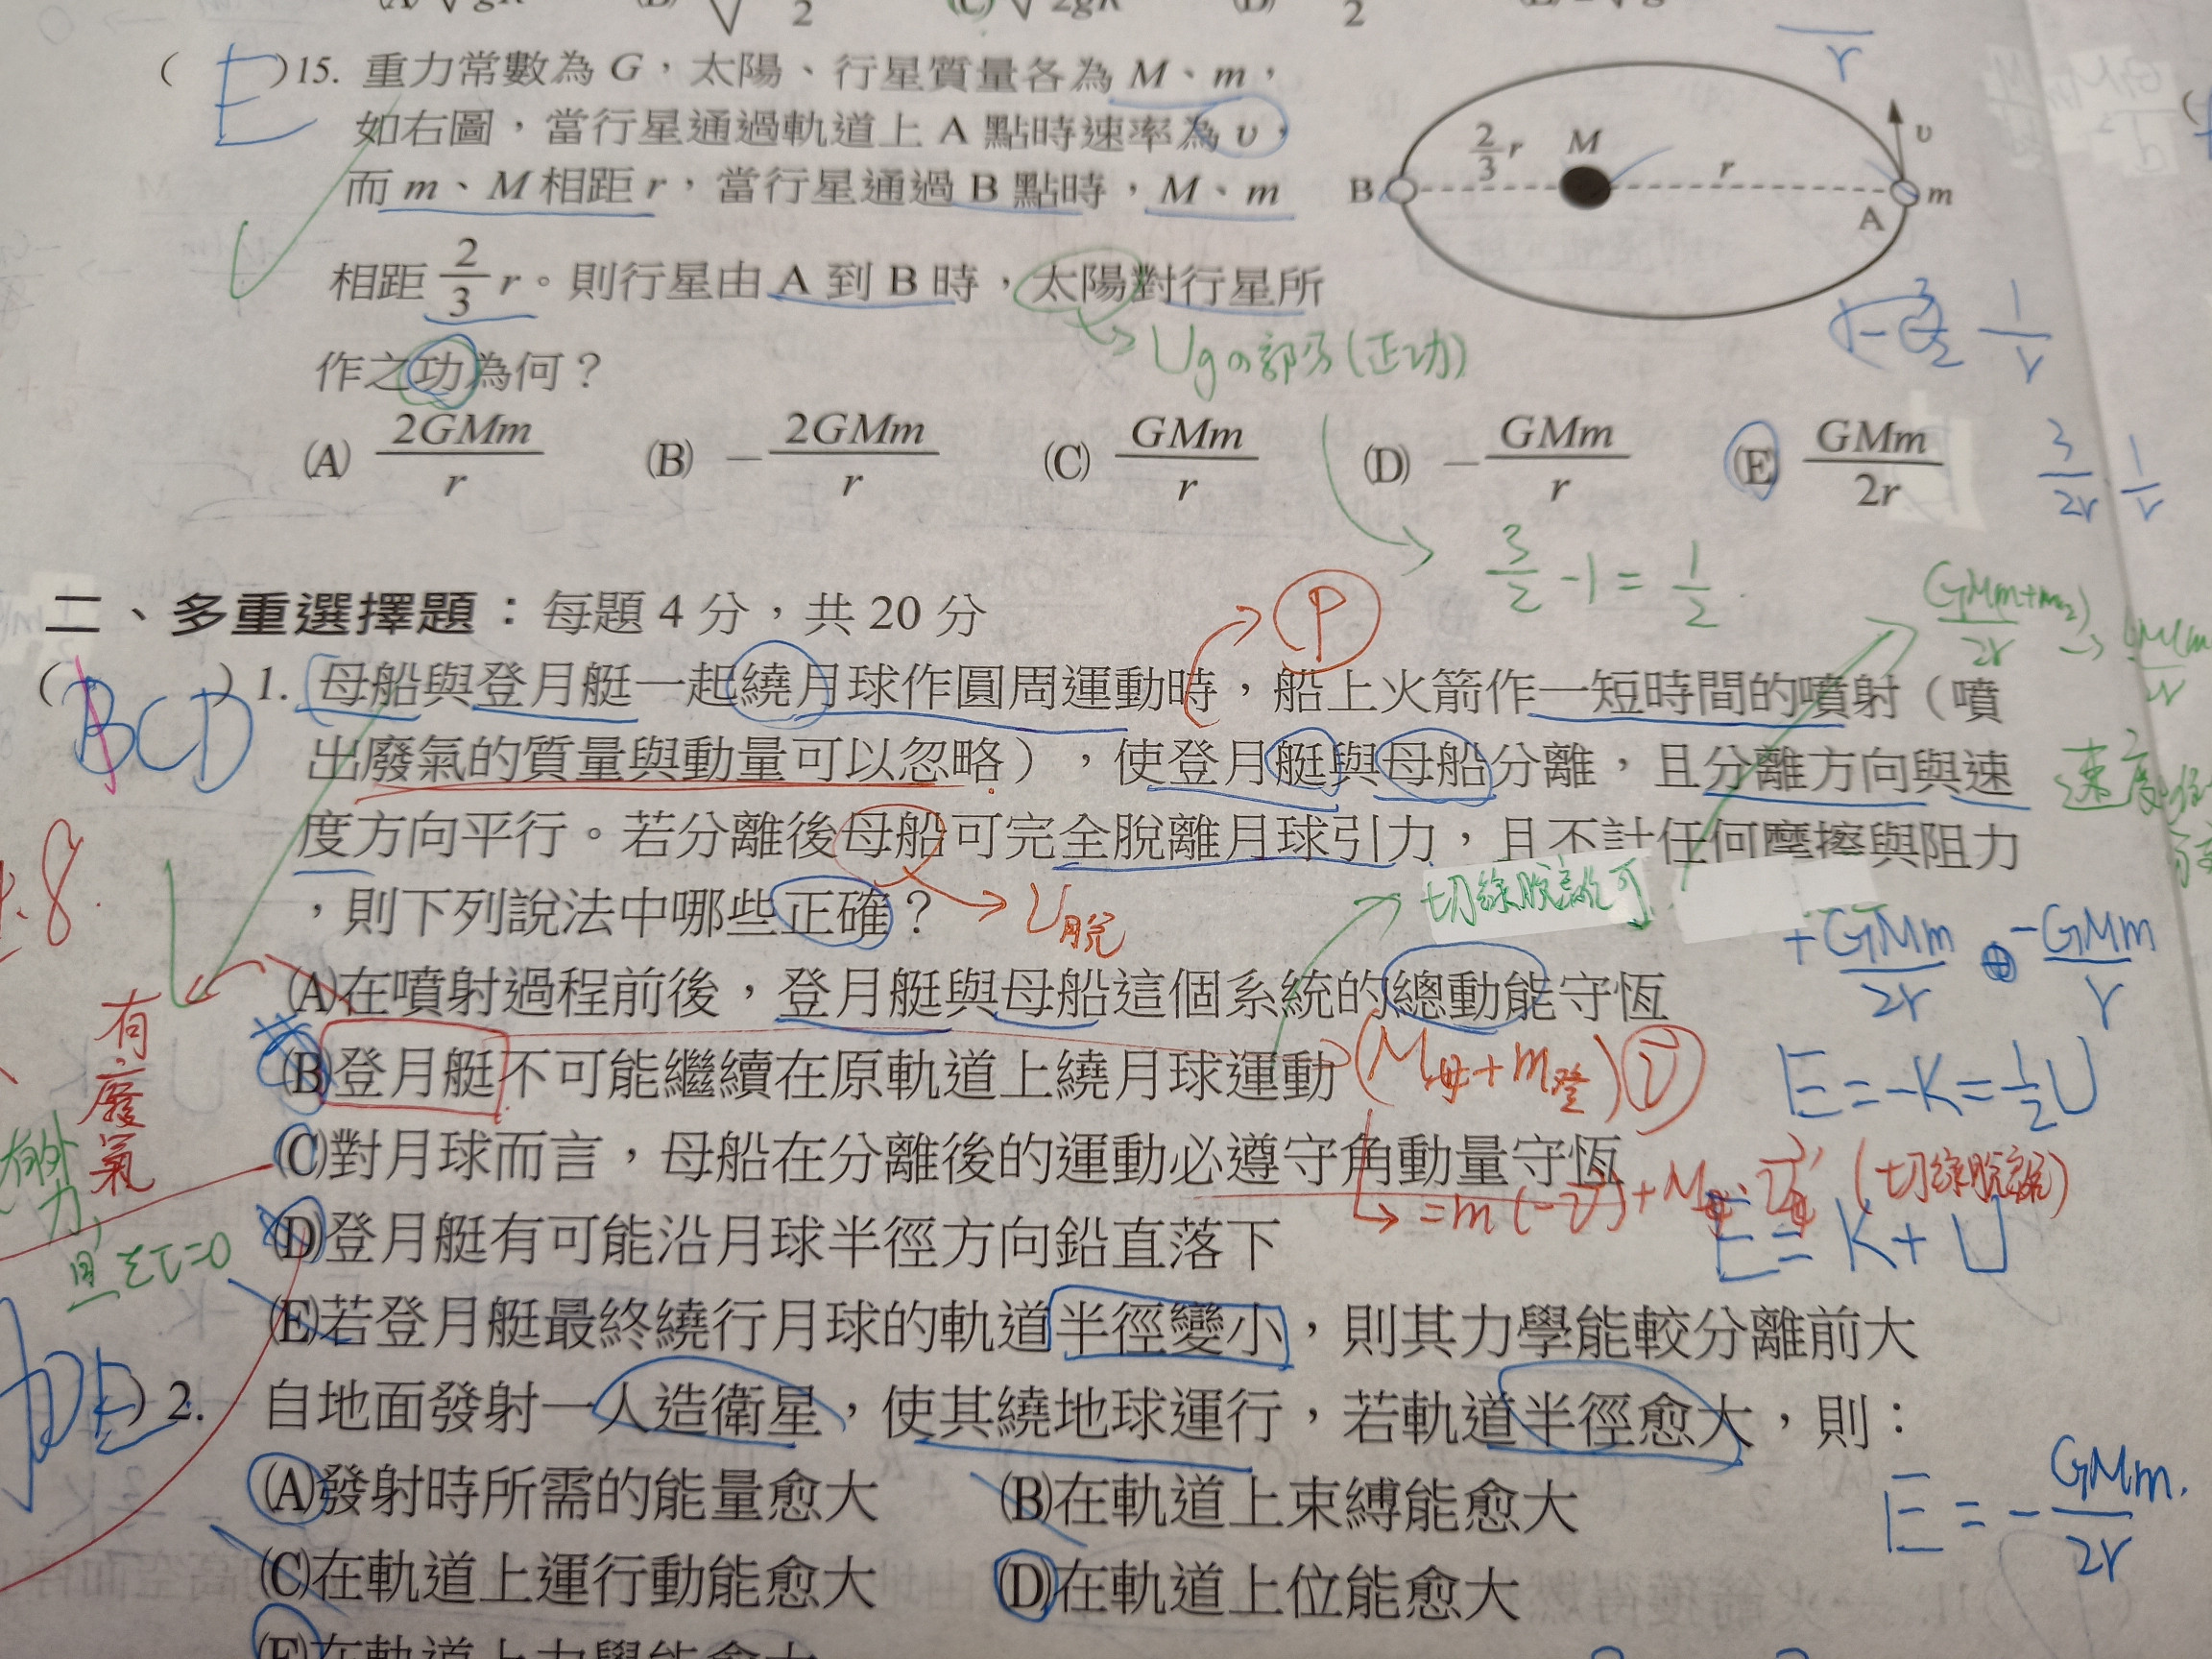 ( E )15. 重力常數為 G，太陽、行星質量各為 M、m，
如右圖，當行星通過軌道上 A 點時速率為 υ，
而 m、M 相距 r，當行星通過 B 點時，M、m
相距 2/3 r。則行星由 A 到 B 時，太陽對行星所
作之功為何？
B 2/3 r M r υ A m
Ugの部分(正功)
(A) 2GMm/r (B) －2GMm/r (C) GMm/r (D) －GMm/r (E) GMm/2r
3/2r 1/r
3/2 -1 = 1/2
二、多重選擇題：每題 4 分，共 20 分
P
( BCD ) 1. 母船與登月艇一起繞月球作圓周運動時，船上火箭作一短時間的噴射（噴
出廢氣的質量與動量可以忽略），使登月艇與母船分離，且分離方向與速
度方向平行。若分離後母船可完全脫離月球引力，且不計任何摩擦與阻力
，則下列說法中哪些正確？
U脫
切線脫離可
(A)在噴射過程前後，登月艇與母船這個系統的總動能守恆
+GMm/2r ⊕ -GMm/r
有廢氣
(B)登月艇不可能繼續在原軌道上繞月球運動
(M母+m登)v
E=-K=1/2U
(C)對月球而言，母船在分離後的運動必遵守角動量守恆
=m(-v)+M母·v母' (切線脫離)
E=K+U
(D)登月艇有可能沿月球半徑方向鉛直落下
且Στ=0
(E)若登月艇最終繞行月球的軌道半徑變小，則其力學能較分離前大
ADE ) 2. 自地面發射一人造衛星，使其繞地球運行，若軌道半徑愈大，則：
(A)發射時所需的能量愈大 (B)在軌道上束縛能愈大
E=-GMm/2r
(C)在軌道上運行動能愈大 (D)在軌道上位能愈大
(E)在軌道上力學能愈大